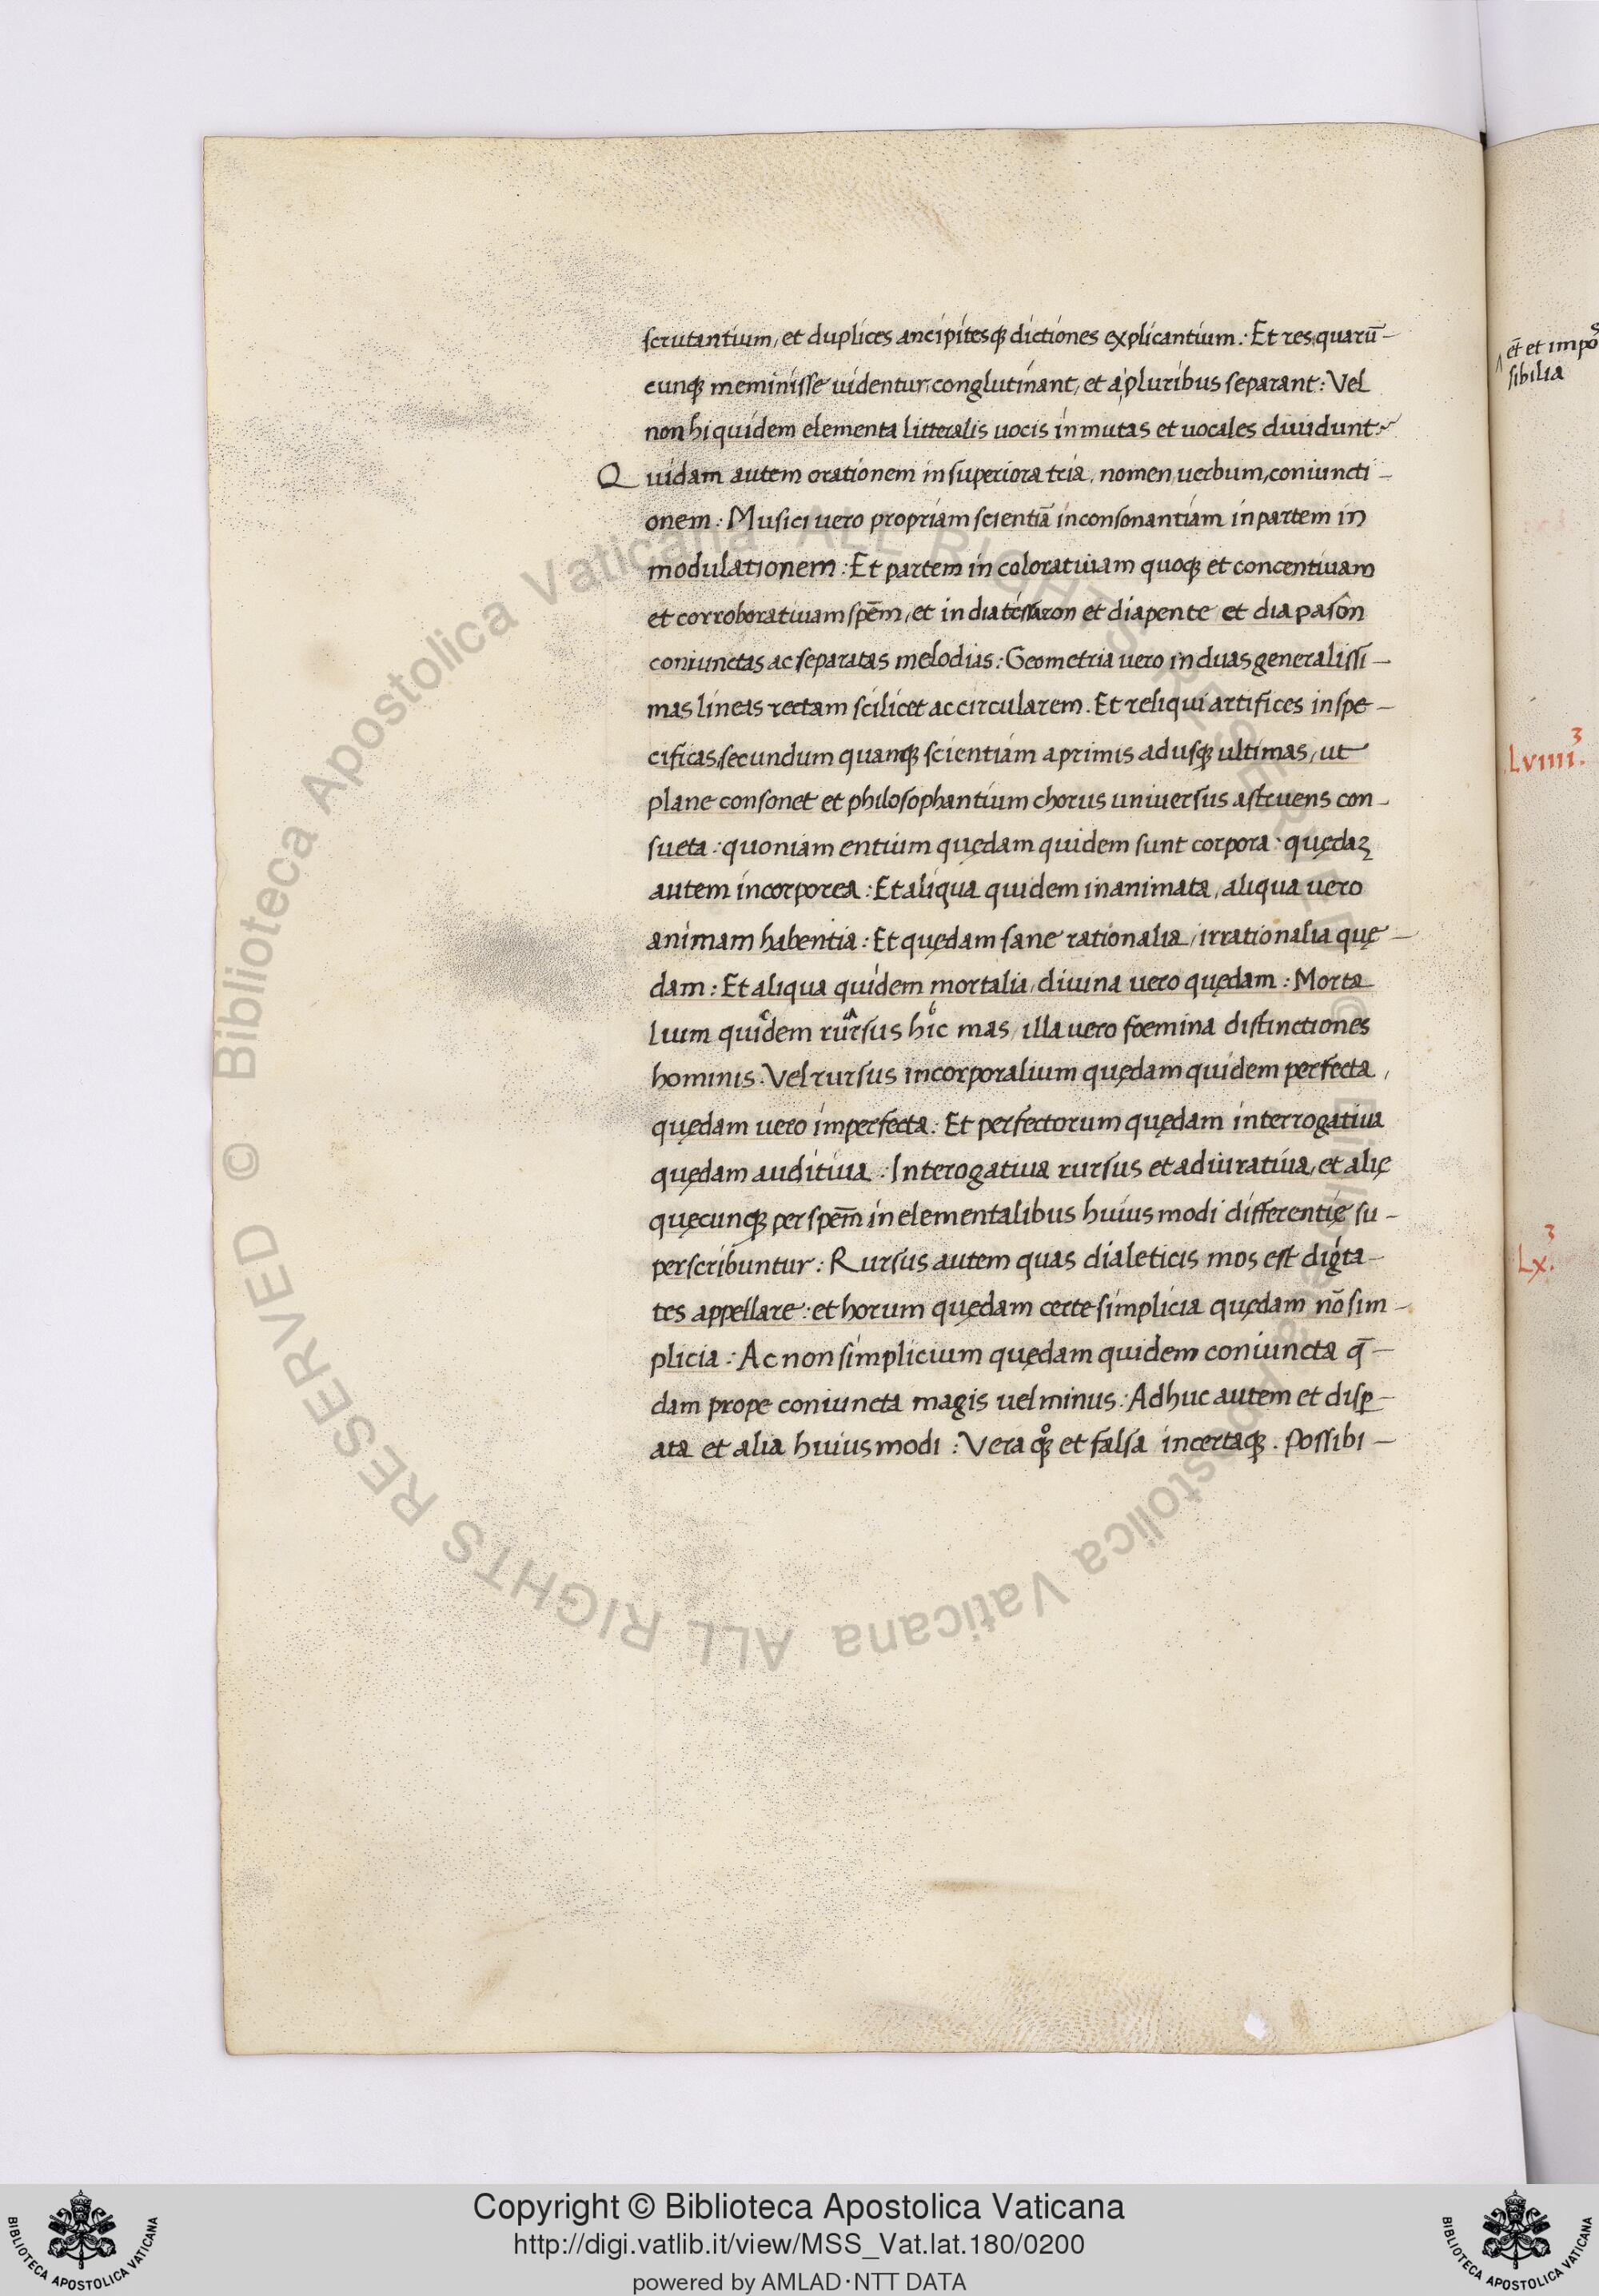 scrutantium, et duplices ancipitesq dictiones explicantium: Et res quarū-
cunq meminisse uidentur, conglutinant, et a pluribus separant: Vel
non hi quidem elementa litteralis uocis in mutas et uocales diuidunt:
Quidam autem orationem in superiora tria, nomen, uerbum, coniuncti-
onem: Musici uero propriam scientiā in consonantiam in partem in
modulationem: Et partem in coloratiuam quoq et concentiuam
et corroboratiuam spēm, et in diatessaron et diapente et dia pasôn
coniunctas ac separatas melodias: Geometria uero in duas generalissi-
mas lineas rectam scilicet ac circularem. Et reliqui artifices in spe-
cificas, secundum quamq scientiam a primis adusq ultimas, ut
plane consonet et philosophantium chorus uniuersus astruens con-
sueta: quoniam entium quędam quidem sunt corpora: quędaʒ
autem incorporea: Et aliqua quidem inanimata, aliqua uero
animam habentia: Et quędam sane rationalia, irrationalia quę-
dam: Et aliqua quidem mortalia, diuina uero quędam: Morta
lium quidem rursus hic mas, illa uero foemina distinctiones
hominis. Vel rursus incorporalium quędam quidem perfecta,
quędam uero imperfecta: Et perfectorum quędam interrogatiua
quędam auditiua: Interogatiua rursus et adiuratiua, et alię
quęcunq per spēm in elementalibus huius modi differentię su-
perscribuntur: Rursus autem quas dialeticis mos est digita-
tes appellare: et horum quędam certe simplicia quędam nō sim-
plicia: Ac non simplicium quędam quidem coniuncta q̄-
dam prope coniuncta magis uel minus: Adhuc autem et disp-
ata et alia huius modi: Vera qͦꝫ et falsa incertaq. Possibi-
et̄ et impos
sibilia
Lviiii.3
Lx.3
© Biblioteca Apostolica Vaticana ALL RIGHTS RESERVED
© Biblioteca Apostolica Vaticana ALL RIGHTS RESERVED
BIBLIOTECA APOSTOLICA VATICANA
Copyright © Biblioteca Apostolica Vaticana
http://digi.vatlib.it/view/MSS_Vat.lat.180/0200
powered by AMLAD·NTT DATA
BIBLIOTECA APOSTOLICA VATICANA